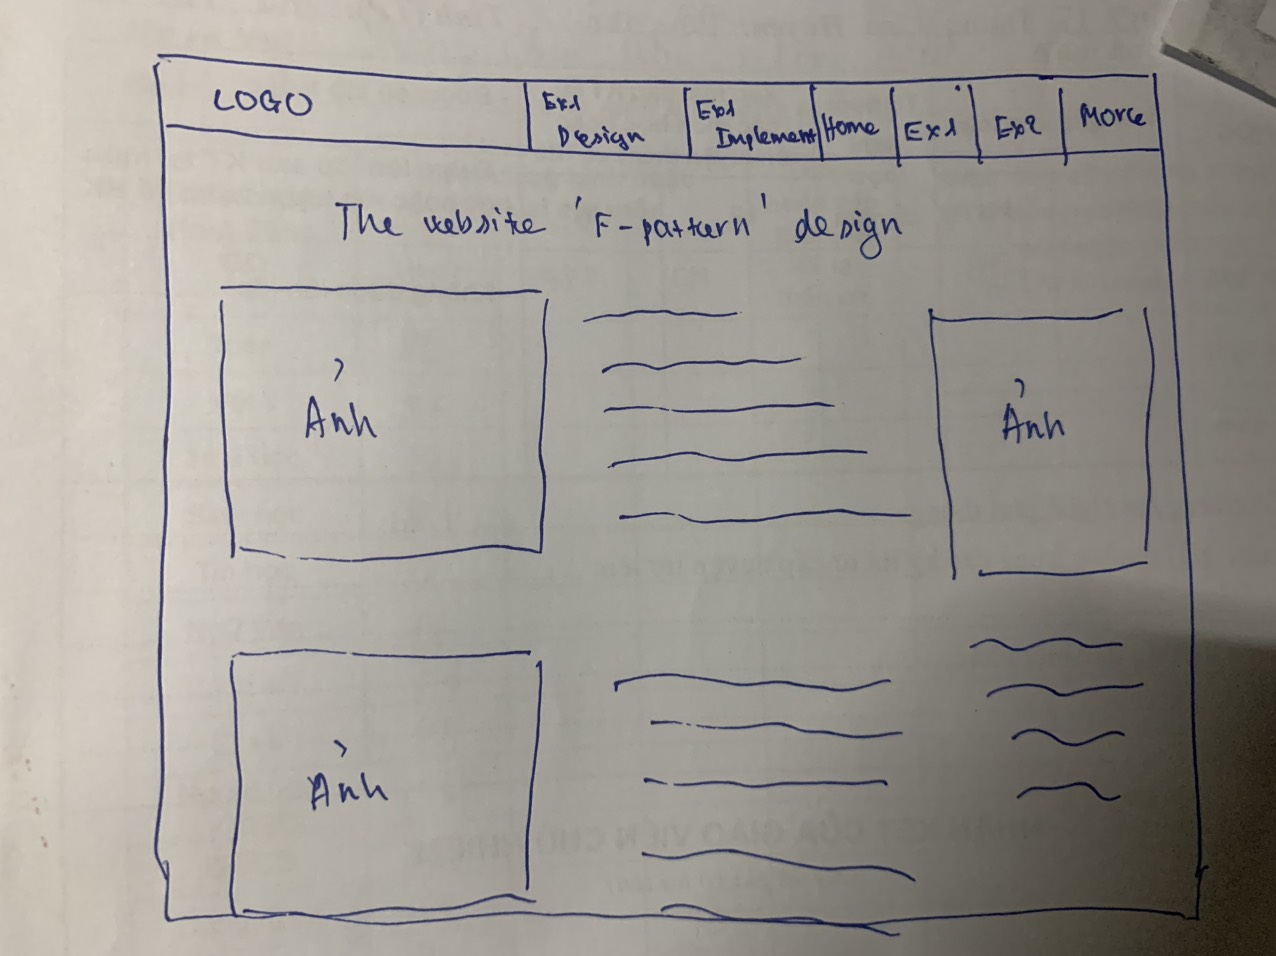 LOGO
Ex1
Design
Ex1
Implement
Home
Ex1
Ex2
More
The website 'F-pattern' design
Ảnh
Ảnh
Ảnh